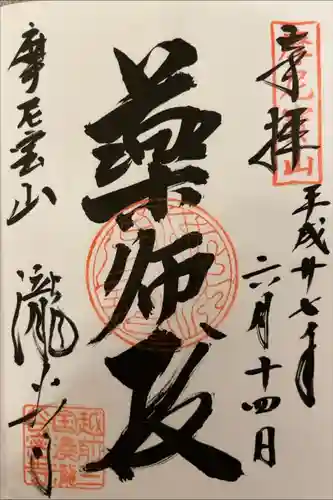 奉拝
平成廿七年
六月十四日
薬師殿
摩尼宝山
瀧谷寺